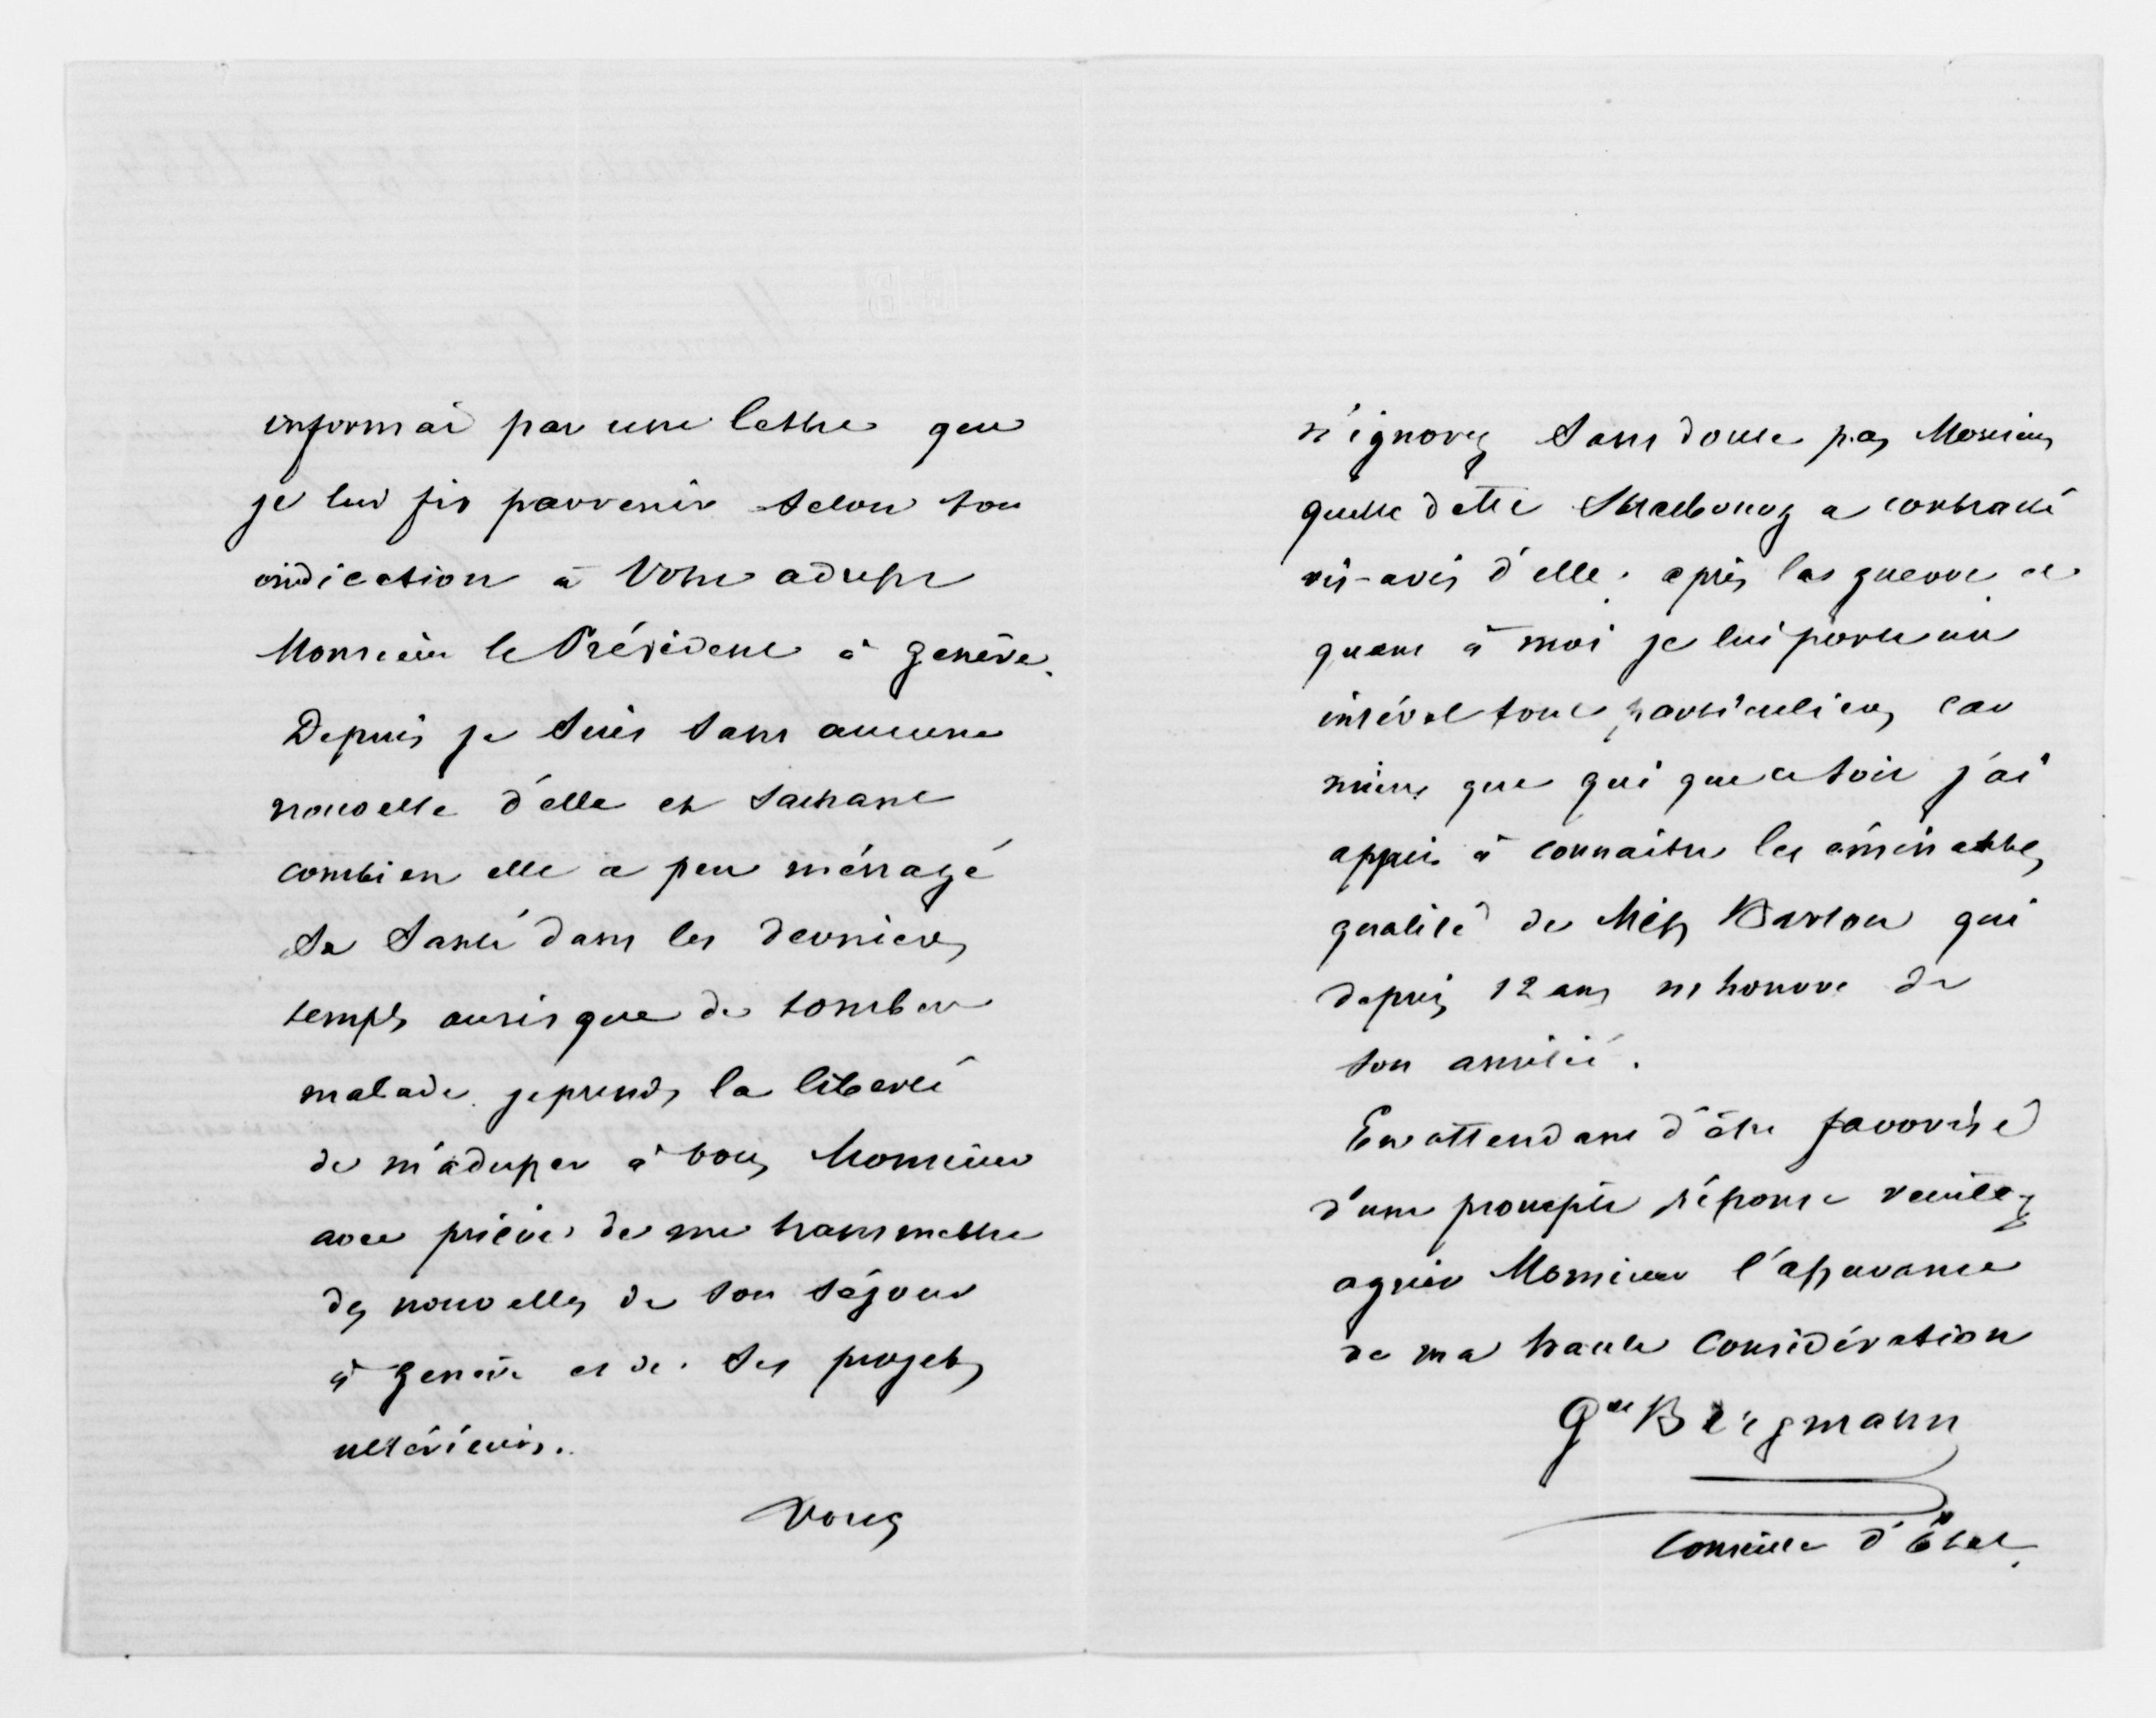 informai par une lettre que
je lui fis parvenir selon son
indication à votre adresse
Monsieur le Président à Genève.
Depuis je suis sans aucune
nouvelle d'elle et sachant
combien elle a peu ménagé
sa santé dans les derniers
temps au risque de tomber
malade je prends la liberté
de m'adresser à vous Monsieur
avec prière de me transmettre
des nouvelles de son séjour
à Genève et de ses projets
ultérieurs.
Vous
n'ignorez sans doute pas Monsieur
quelle dette Strasbourg a contracté
vis-avis d'elle après la guerre et
quant à moi je lui porte un
intérêt tout particulier, car
mieux que qui que ce soit j'ai
appris à connaitre les
qualité de Miss Barton qui
depuis 12 ans m'honore de
son amitié.
En attendant d'être favorisé
d'une prompte réponse veuillez
agréer Monsieur l'assurance
de ma haute considération
Gve Bergmann
Conseiller d'État.